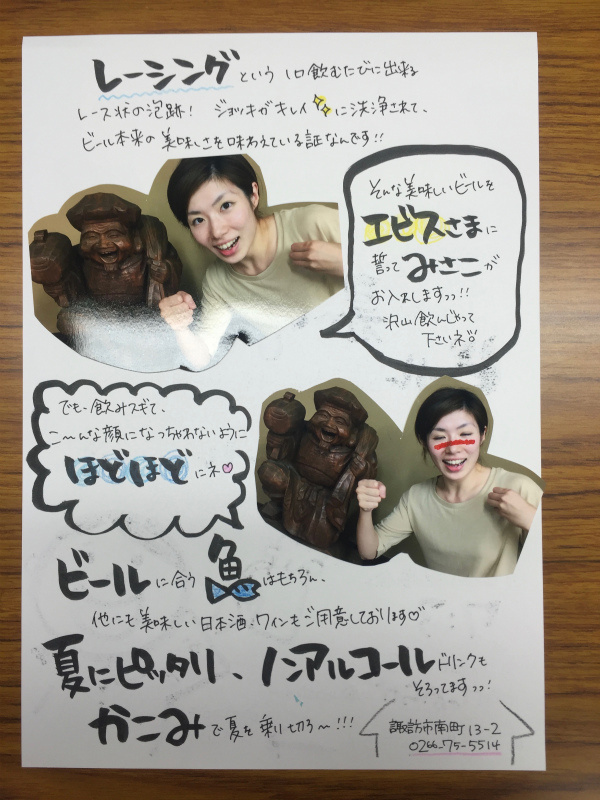 レーシングという 1口飲むたびに出来る
レース状の泡跡! ジョッキがキレイに洗浄されて、
ビール本来の美味しさを味わえている証なんです!!
そんな美味しいビールを
エビスさまに
誓ってみさこが
お入れしますっっ!!
沢山飲んじゃって
下さいネ♡
でも一飲みスギて、
こ〜んな顔になっちゃわないように
ほどほどにネ♡
ビールに合う魚はもちろん、
他にも美味しい日本酒、ワインもご用意しております♡
夏にピッタリ、ノンアルコールドリンクも
そろってますっっ!
かこみで夏を乗り切ろ〜!!!
諏訪市南町13-2
0266-75-5514